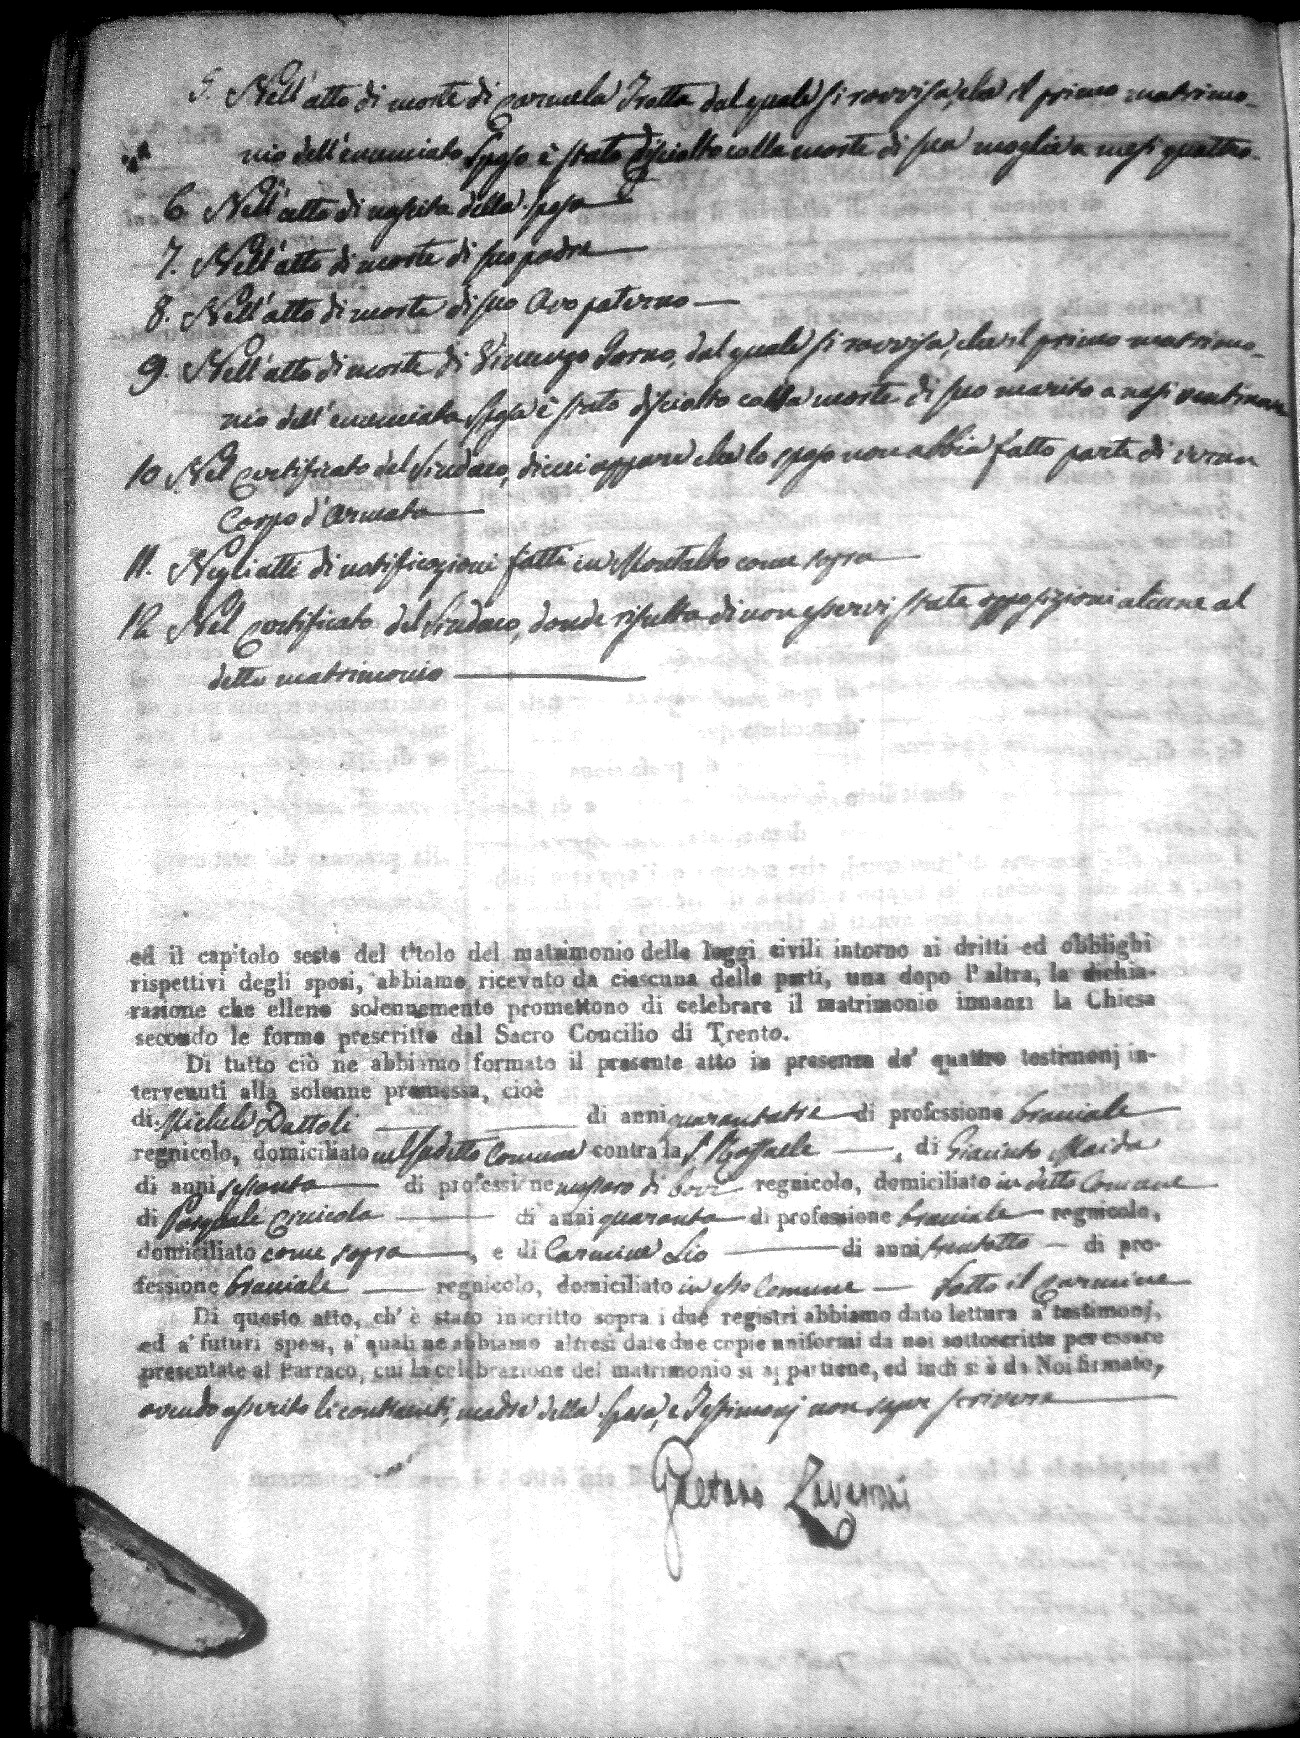 5. Nell'atto di morte di Carmela Trotta dal quale si ravvisa, che il primo matrimo-
nio dell'enunciato Sposo è stato disciolto colla morte di sua moglie a mesi quattro.
6. Nell'atto di nascita della sposa
7. Nell'atto di morte di suo padre
8. Nell'atto di morte di suo Avo paterno
9. Nell'atto di morte di Vincenzo Sorno, dal quale si ravvisa, che il primo matrimo-
nio dell'enunciata Sposa è stato disciolto colla morte di suo marito a mesi
10 Nel Certificato del Sindaco, di cui appare che lo sposo non abbia fatto parte di verun
Corpo d'Armata
11. Negli atti di notificazioni fatti in Montalto come sopra
12 Nel Certificato del Sindaco, donde risulta di non esservi state opposizioni alcune al
detto matrimonio
ed il capitolo sesto del titolo del matrimonio delle leggi civili intorno ai dritti ed obblighi
rispettivi degli sposi, abbiamo ricevuto da ciascuna delle parti, una dopo l'altra, la dichia-
razione che elleno solennemente promettono di celebrare il matrimonio innanzi la Chiesa
secondo le forme prescritte dal Sacro Concilio di Trento.
Di tutto ciò ne abbiamo formato il presente atto in presenza de' quattro testimonj in-
tervenuti alla solenne promessa, cioè
di Michele Dattoli di anni quarantatre di professione braciale
regnicolo, domiciliato nel sudetto Comune contra la S. Raffaele, di Giacinto Maida
di anni sessanta di professione massaro di bovi regnicolo, domiciliato in detto Comune
di Pasquale Cinicola di anni quaranta di professione braciale regnicolo,
domiciliato come sopra, e di Carmine Lio di anni trentotto di pro-
fessione braciale regnicolo, domiciliato in esso Comune sotto il Carmine
Di questo atto, ch'è stato inscritto sopra i due registri abbiamo dato lettura a' testimonj,
ed a' futuri sposi, a' quali ne abbiamo altresì date due copie uniformi da noi sottoscritte per essere
presentate al Parroco, cui la celebrazione del matrimonio si appartiene, ed indi si è da Noi firmato,
avendo asserito li contraenti, madre della Sposa, e Testimonj non saper scrivere
Gaetano